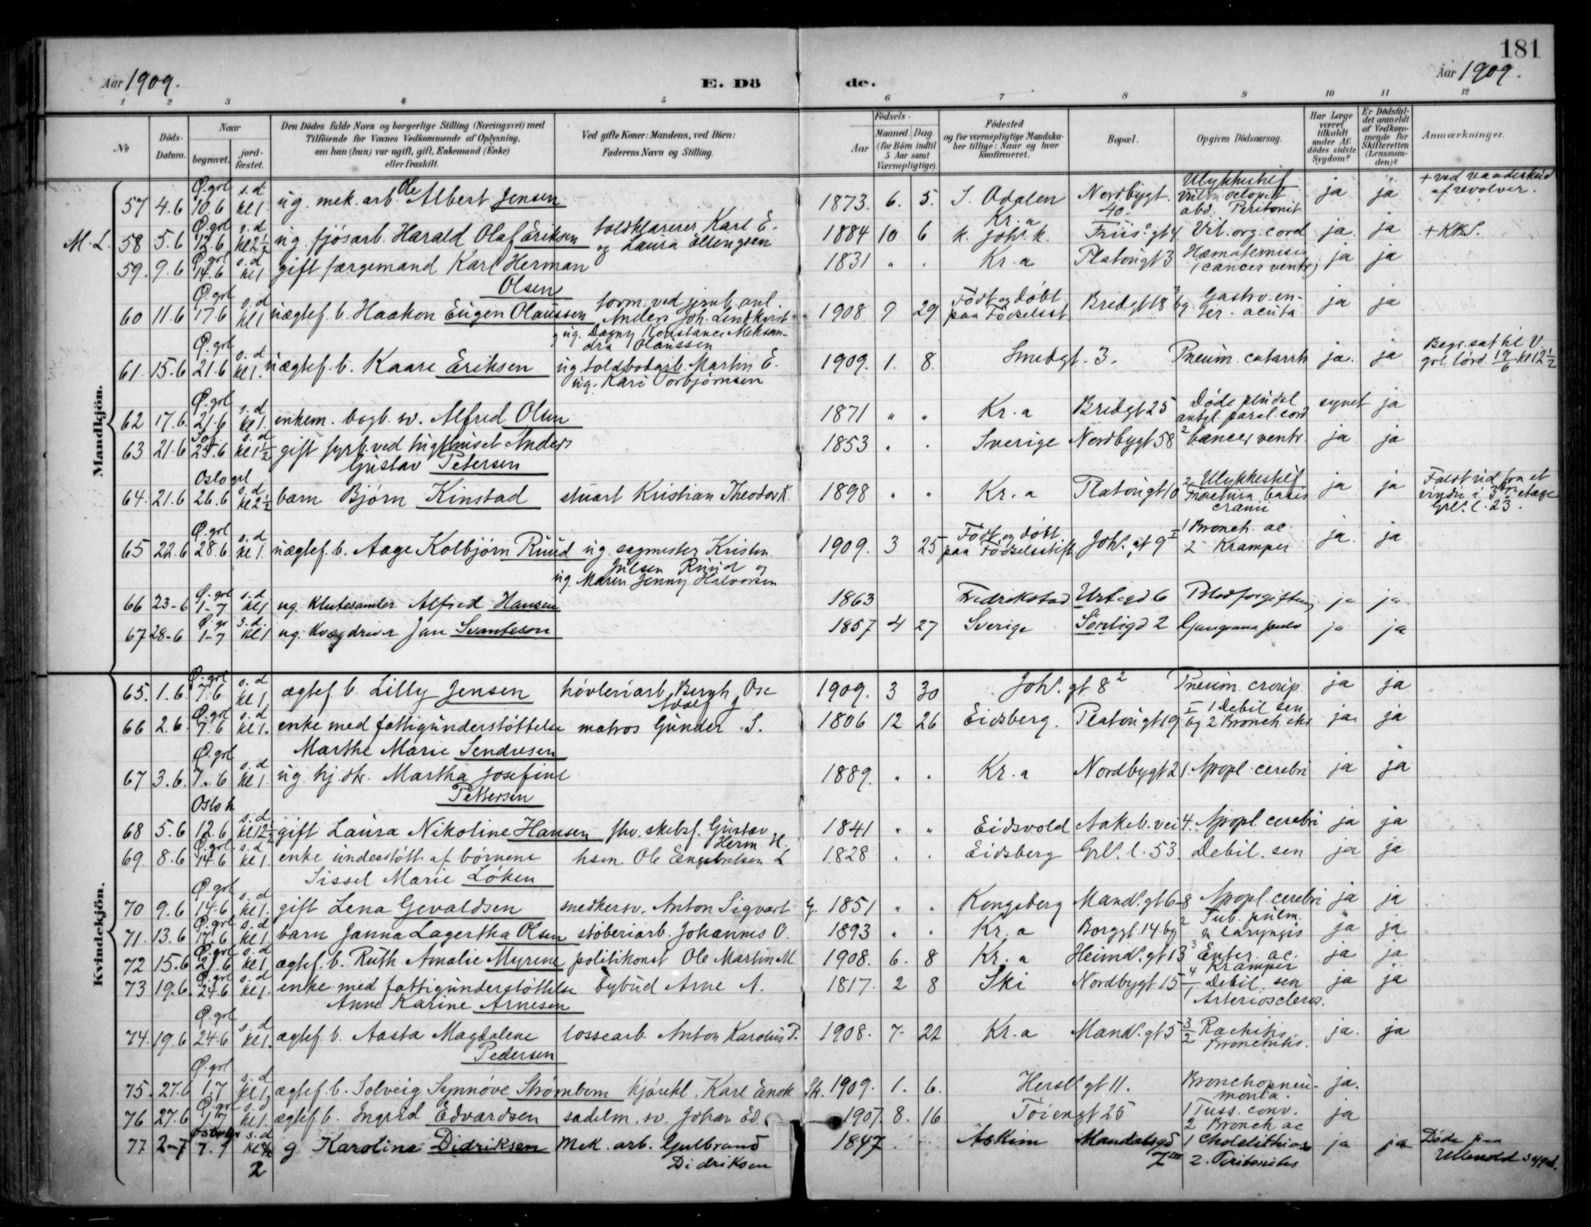 181
Aar 1909. E. Dö de. Aar 1909.
1 2 3 4 5 6 7 8 9 10 11 12
No
Döds-Datum.
Naar
begravet.
jord-fæstet.
Den Dödes fulde Navn og borgerlige Stilling (Næringsvei) med
Tilföiende for Voxnes Vedkommende af Oplysning,
om han (hun) var ugift, gift, Enkemand (Enke)
eller fraskilt.
Ved gifte Koner: Mandens, ved Börn:
Faderens Navn og Stilling.
Födsels-
Aar
Maaned Dag
(for Börn indtil
5 Aar samt
Værnepligtige).
Födested
og for værnepligtige Mandska-
ber tillige: Naar og hvor
Konfirmeret.
Bopæl.
Opgiven Dödsaarsag.
Har Læge
været
tilkaldt
under Af-
dödes sidste
Sygdom?
Er Dödsfal-
det anmeldt
af Vedkom-
mende for
Skifteretten
(Lensman-
den)?
Anmærkninger.
Mandkjön.
57 4.6 Ø.grl 10.6 s.d. kl 1 ug. mek. arb. Ole Albert Jensen 1873. 6. 5. S. Odalen Nordbygt. 40. Ulykkestilf abd. Peritonit ja ja + ved vaadeskud af revolver.
M.L. 58 5.6 Ø.grl 12.6 s.d. kl 2½ ug. fjøsarb. Harald Olaf Eriksen toldklarerer Karl E. og Laura Ellengsen 1884 10 6 Kr.a k. Joh's k. Friis's gt 4 Vit. org. cord ja ja
59. 9.6 Ø.grl 14.6 s.d. kl 1 gift færgemand Karl Herman Olsen 1831 " " Kr.a Platousgt 3 Hæmatemisis (cancer ventr) ja ja
60 11.6 Ø.grl 17.6 s.d. kl 1 uægtef. b. Haakon Eugen Olaussen form. ved jernb. anl. Anders Joh. Lindkvist ug. Dagny Konstance Aleksandra Olaussen 1908 9 29 Født og døbt paa Fødselsst Bredgt 18 Gastro-enter. acuta ja ja
61. 15.6 Ø.grl 21.6 s.d. kl 1. uægtef. b. Kaare Eriksen ug. toldbodarb. Martin E. ug. Kari Torbjørnsen 1909. 1. 8. Smedgt. 3. Pneum. catarrh ja. ja Begr. sat til V. grl lørd 19/6 kl 12½
62 17.6 Ø.grl 21.6 s.d. kl 1. enkem. bogb. sv. Alfred Olsen 1871 " " Kr.a Bredgt 25 Døde pludsl. paral. cord synet ja
63 21.6 25.6 s.d. kl 1½ gift fyrb. ved tugthuset Anders Gustav Petersen 1853 " " Sverige Nordbygt 58 Cancer ventr. ja ja
64. 21.6 Oslo grl 26.6 s.d. kl 2½ barn Bjørn Kinstad stuart Kristian Theodor K. 1898 " " Kr.a Platousgt 10 Ulykkestilf Fractura basis cranii ja ja Faldt ud fra et vindu i 3die etage Grl's l. 23.
65 22.6 Ø.grl 28.6 s.d. kl 1. uægtef. b. Aage Kolbjørn Ruud ug. sagmester Kristen Julsen Ruud og ug. Maren Jenny Halvorsen 1909. 3 25 Født og døbt paa Fødselsstift Joh's gt 9 1 Bronch. ac. 2 Kramper ja. ja
66 23-6 Ø.grl 1-7 s.d. kl 1 ug. Klutesamler Alfred Hansen 1863 Fredrikstad Urtegd 6 Blodforgiftning ja ja
67 28-6 Ø.gr 1-7 s.d. kl 1 ug. Kvægdriver Jan Svanteson 1857 4 27 Sverige Sørligd 2 ja ja
Kvindekjön.
65. 1.6 Ø.grl 7.6 s.d. kl 1 ægtef. b. Lilly Jensen høvleriarb. Bergh. Adolf J 1909. 3 30 Joh's. gt 8² Pneum. croup. ja ja
66 2.6 Ø.grl 7.6 s.d. kl 1. enke med fattigunderstøttelse Marthe Marie Sendresen matros Gunder S. 1806 12 26 Eidsberg. Platousgt 19 1 Debil sen 2 Bronch. chr ja ja
67 3.6 Ø.grl 7.6 s.d. kl 1. ug. hj. dtr. Martha Josefine Pettersen 1889. " " Kr.a Nordbygt 21. Apopl. cerebri ja ja
68 5.6 Oslo k 12.6 s.d. kl 12½ gift Laura Nikoline Hansen fhv. skibsf. Gustav Herm H. 1841 " " Eidsvold Aakeb. vei 4. Apopl. cerebri ja ja
69. 8.6 Ø.grl 14.6 s.d. kl 1. enke understøtt. af børnene Sissel Marie Løken hsm Ole Engebretsen L 1828 " " Eidsberg Grl's. l. 53 Debil. sen ja ja
70 9.6 Ø.grl 14.6 s.d. kl 1. gift Lena Gevaldsen snedkersv. Anton Sigvart G. 1851 " " Kongsberg Mand's gt 6-8 Apopl. cerebri ja ja
71. 13.6 Ø.grl 17.6 s.d. kl 1. barn Janna Lagertha Olsen støberiarb. Johannes O. 1893 " " Kr.a Borggt 14 Tub. pulm. & laryngis ja ja
72 15.6 Ø.grl 21.6 s.d. kl 1. ægtef. b. Ruth Amalie Myrene politikonst Ole Martin M 1908. 6. 8 Kr.a Heimd's gt 13 Enter. ac. Kramper ja ja
73 19.6 Ø.grl 24.6 s.d. kl 1. enke med fattigunderstøttelse Anne Karine Arnesen bybud Arne A. 1817. 2 8 Ski Nordbygt 15 Debil. sen Arteriosclerос. ja ja
74. 19.6 Ø.grl 24.6 s.d. kl 1. ægtef. b. Aasta Magdalene Pedersen lossearb. Anton Karolius P. 1908. 7. 22 Kr.a Mand's. gt 5 Rachitis. Bronchitis. ja. ja
75. 27.6 Ø.grl 1.7 s.d. kl 1. ægtef. b. Solveig Synnøve Strømbom kjørekl. Karl Enok Str. 1909. 1. 6. Hersl's gt 11. Bronchopneumonia. ja.
76 27.6 Ø.grl 1.7 s.d. kl 1. ægtef. b. Ingrid Edvardsen sadelm. sv. Johan Ed. 1907. 8. 16 Tøiengt 25 1 Tuss. conv. 2 Bronch ac ja
77 2-7 7.7 s.d. kl 2 g Karoline Didriksen Mek. arb. Gulbrand Didriksen 1847 Askim Mandalsgd 7 1 Cholelithiasis 2. Peritonitis ja ja Døde paa Ullevold sygeh.